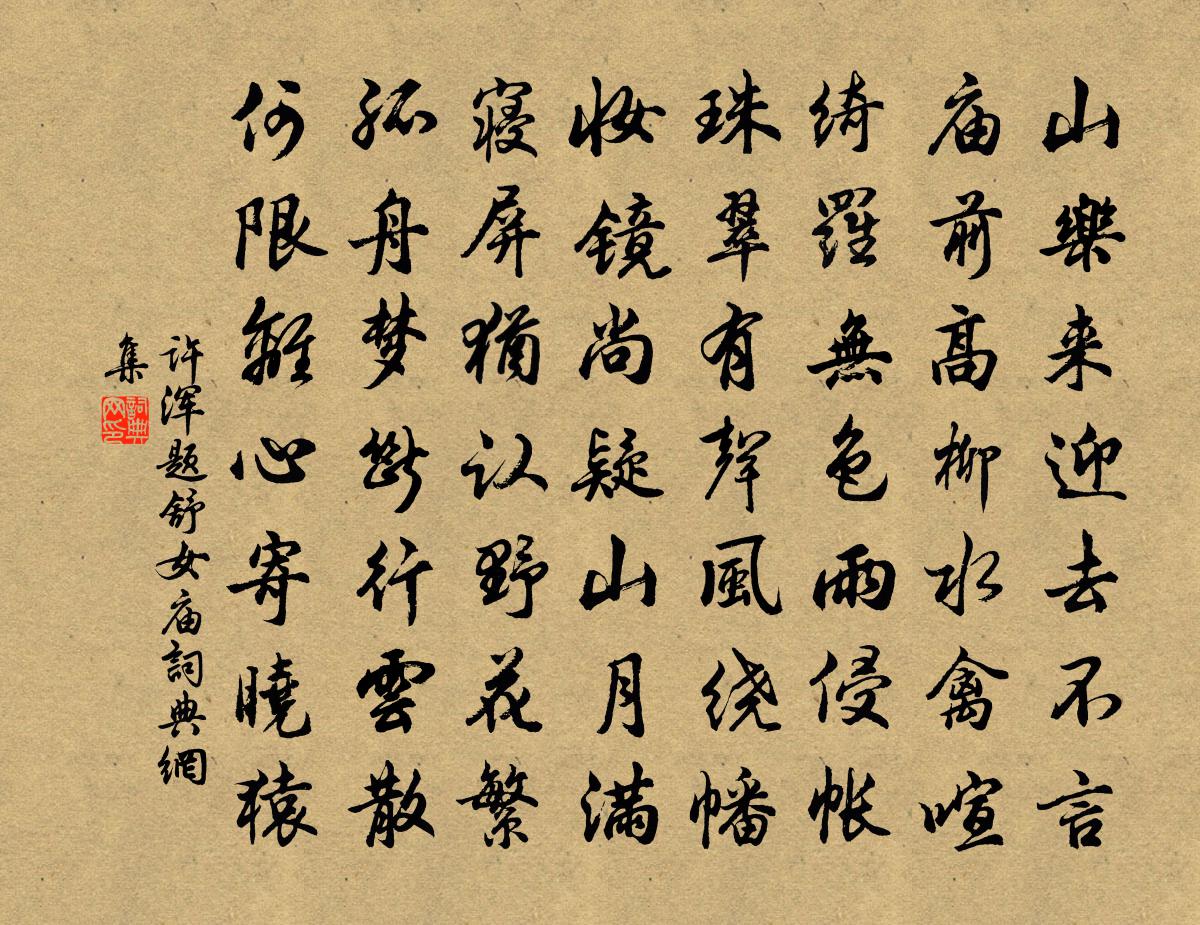 山樂来迎去不言
庙前髙柳水禽喧
綺羅無色雨侵帐
珠翠有聲風绕幡
妆镜尚疑山月满
寝屏猶认野花繁
孤舟梦斷行雲散
何限離心寄曉猿
许浑题舒女庙詞典網
集
詞典
网印